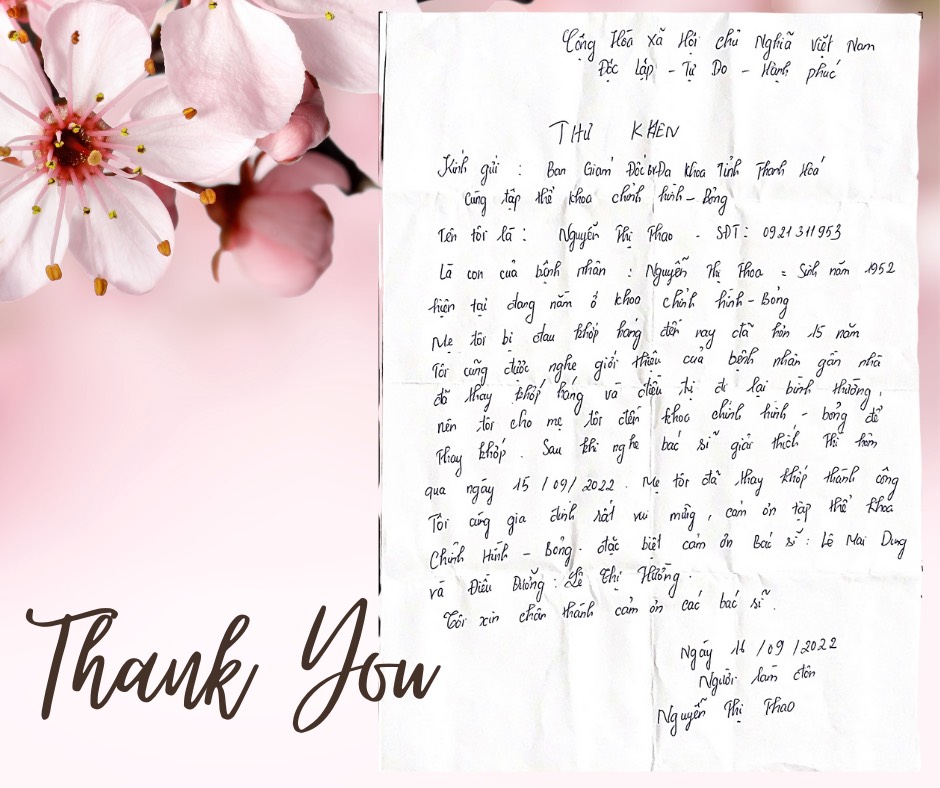 Cộng Hóa xã Hội chủ Nghĩa Việt Nam
Độc lập - Tự Do - Hạnh phúc
THƯ KHEN
Kính gửi : Ban Giám Đốc BV Đa Khoa Tỉnh Thanh Hóá
cùng tập thể khoa chỉnh hình - Bỏng
Tên tôi là : Nguyễn Thị Thao - SĐT : 0921311953
Là con của bệnh nhân : Nguyễn Thị Thoa = Sinh năm 1952
hiện tại đang nằm ở khoa chỉnh hình - Bỏng
Mẹ tôi bị đau khớp háng đến nay đã hơn 15 năm
Tôi cũng được nghe giới thiệu của bệnh nhân gần nhà
đã thay khớp háng và điều trị đi lại bình thường,
nên tôi cho mẹ tôi đến khoa chỉnh hình - bỏng để
thay khớp. Sau khi nghe bác sĩ giải thích thì hôm
qua ngày 15/09/2022. Mẹ tôi đã thay khớp thành công
Tôi cùng gia đình rất vui mừng, cảm ơn tập thể khoa
Chỉnh Hình - Bỏng. đặc biệt cảm ơn Bác sĩ : Lê Mai Dung
và Điều Dưỡng : Lê Thị Hường.
Tôi xin chân thành cảm ơn các bác sĩ.
Ngày 16/09/2022
Người làm đơn
Nguyễn Thị Thao
Thank You